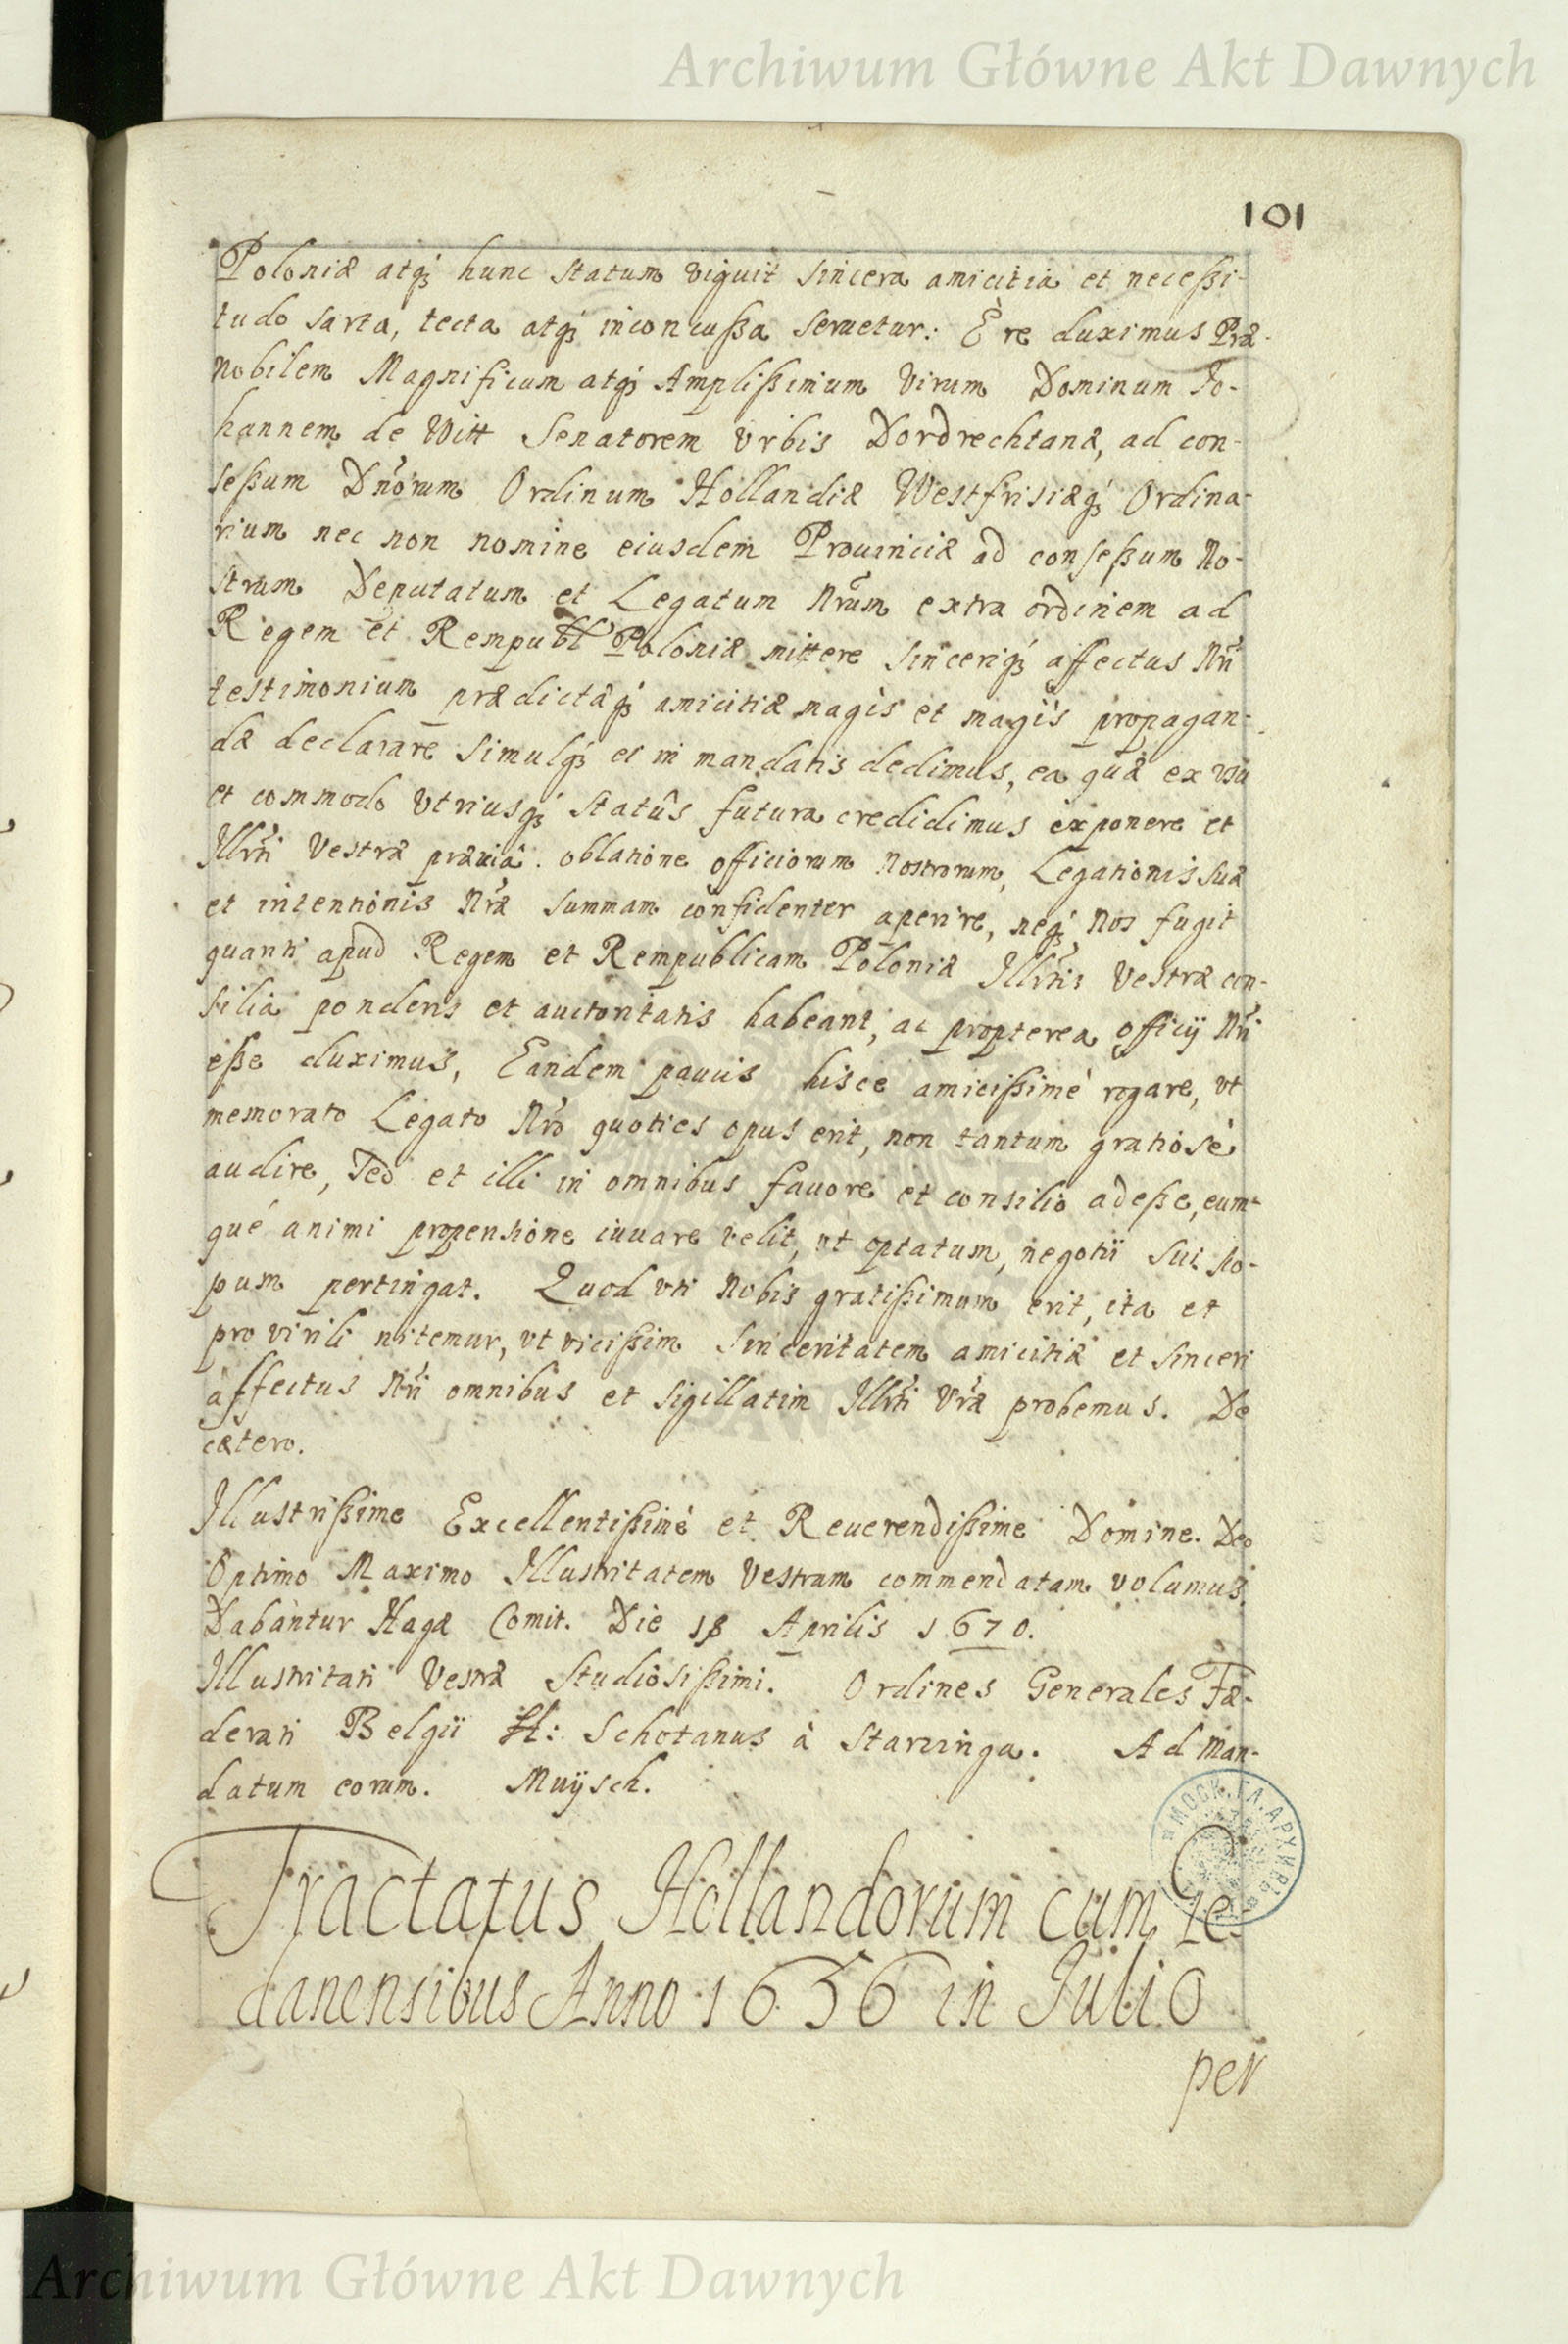 Archiwum Główne Akt Dawnych
101
Poloniæ atqꝫ hunc statum viguit sincera amicitia et necessi-
tudo sarta, tecta atqꝫ inconcussa seruetur: E re duximus Præ-
nobilem Magnificum atqꝫ Amplissimum Virum Dominum Jo-
hannem de Witt Senatorem Vrbis Dordrechtanæ, ad con-
sessum Dnorum Ordinum Hollandiæ Westfrisiæqꝫ Ordina-
rium nec non nomine eiusdem Prouinciæ ad consessum No-
strum Deputatum et Legatum Nrum extra ordinem ad
Regem et Rempubl Poloniæ mittere sinceriqꝫ affectus Nri
testimonium prædictæqꝫ amicitiæ magis et magis propagan-
dæ declarare simulqꝫ ei in mandatis dedimus, ea quæ ex usu
et commodo Vtriusqꝫ statûs futura credidimus exponere et
Illrti Vestræ præuiâ oblatione officiorum Nostrorum, Legationis suæ
et intentionis Nræ summam confidenter aperire, neqꝫ Nos fugit
quanti apud Regem et Rempublicam Poloniæ Illrtis Vestræ con-
silia ponderis et auctoritatis habeant, ac propterea officij Nri
esse duximus, Eandem paucis hisce amicissimè rogare, vt
memorato Legato Nro quoties opus erit, non tantum gratiosè
audire, Sed et illi in omnibus fauore et consilio adesse, eum-
què animi propensione iuuare velit, ut optatum, negotii sui sco-
pum pertingat. Quod vti Nobis gratissimum erit, ita et
pro virili nitemur, vt vicissim sinceritatem amicitiæ et sinceri
affectus Nri omnibus et sigillatim Illrti Vræ probemus. De
cætero.
Illustrissime Excellentissime et Reuerendissime Domine. Deo
Optimo Maximo Illustritatem Vestram commendatam volumus.
Dabantur Hagæ Comit. Die 18 Aprilis 1670.
Illustritati Vestræ Studiosissimi. Ordines Generales Fæ-
derati Belgii H: Schotanus à Starringa. Ad Man-
datum eorum. Muÿsch.
Tractatus Hollandorum cum Ge-
danensibus Anno 1656 in Julio
per
МОСК. ГЛ. АРХИВЪ
Archiwum Główne Akt Dawnych